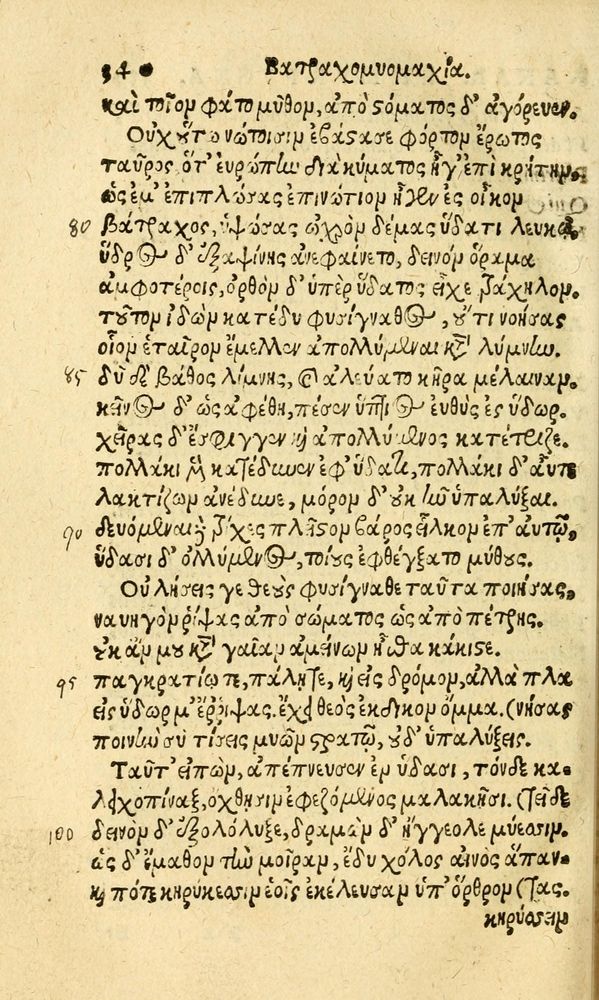 54 Βατραχομυομαχία.
καὶ τοῖον φάτο μῦθον, ἀπὸ στόματος δ' ἀγόρευεν.
Οὐχ οὕτω νώτοισιν ἐβάστασε φόρτον ἔρωτος
ταῦρος ὅτ' εὐρώπην διὰ κύματος ἦγ' ἐπὶ κρήτην,
ὡς ἔμ' ἐπιπλώσας ἐπινώτιον ἦγεν ἐς οἶκον
80 βάτραχος, ὑψώσας ὠχρὸν δέμας ὕδατι λευκῷ.
ὕδρος δ' ἐξαίφνης ἀνεφαίνετο, δεινὸν ὅραμα
ἀμφοτέροις, ὀρθὸν δ' ὑπὲρ ὕδατος εἶχε τράχηλον.
τοῦτον ἰδὼν κατέδυ φυσίγναθος, οὔτι νοήσας
οἷον ἑταῖρον ἔμελλεν ἀπολλύμεναι κατὰ λύμνην.
85 δῦ δὲ βάθος λίμνης, καὶ ἀλεύατο κῆρα μέλαιναν.
κεῖνος δ' ὡς ἀφέθη, πέσεν ὕπτιος εὐθὺς ἐς ὕδωρ.
χεῖρας δ' ἔσφιγγεν καὶ ἀπολλύμενος κατέτριζε.
πολλάκι μὲν κατέδυνεν ἐφ' ὕδατι, πολλάκι δ' αὖτε
λακτίζων ἀνέδυνε, μόρον δ' οὐκ ἦν ὑπαλύξαι.
90 δευόμεναι δὲ τρίχες πλεῖστον βάρος εἷλκον ἐπ' αὐτῷ,
ὕδασι δ' ὀλλύμενος, τοίους ἐφθέγξατο μύθους.
Οὐ λήσεις γε θεοὺς φυσίγναθε ταῦτα ποιήσας,
ναυηγὸν ῥίψας ἀπὸ σώματος ὡς ἀπὸ πέτρης.
οὐκ ἄν μου κατὰ γαῖαν ἀμείνων ἦσθα κάκιστε.
95 παγκρατίῳ τε, πάλῃ τε, καὶ εἰς δρόμον, ἀλλὰ πλα
εἰς ὕδωρ μ' ἔρριψας. ἔχει θεὸς ἔκδικον ὄμμα. (νήσας
ποινὴν σὺ τίσεις μυῶν στρατῷ, οὐδ' ὑπαλύξεις.
Ταῦτ' εἰπὼν, ἀπέπνευσεν ἐν ὕδασι, τόνδε κα-
λειχοπίναξ, ὄχθῃσιν ἐφεζόμενος μαλακῇσι. (τεῖδε
100 δεινὸν δ' ἐξολόλυξε, δραμὼν δ' ἤγγειλε μύεσσιν.
ὡς δ' ἔμαθον τὴν μοῖραν, ἔδυ χόλος αἰνὸς ἅπαν-
καὶ τότε κηρύκεσσιν ἑοῖς ἐκέλευσαν ὑπ' ὄρθρον (τας.
κηρύσσειν